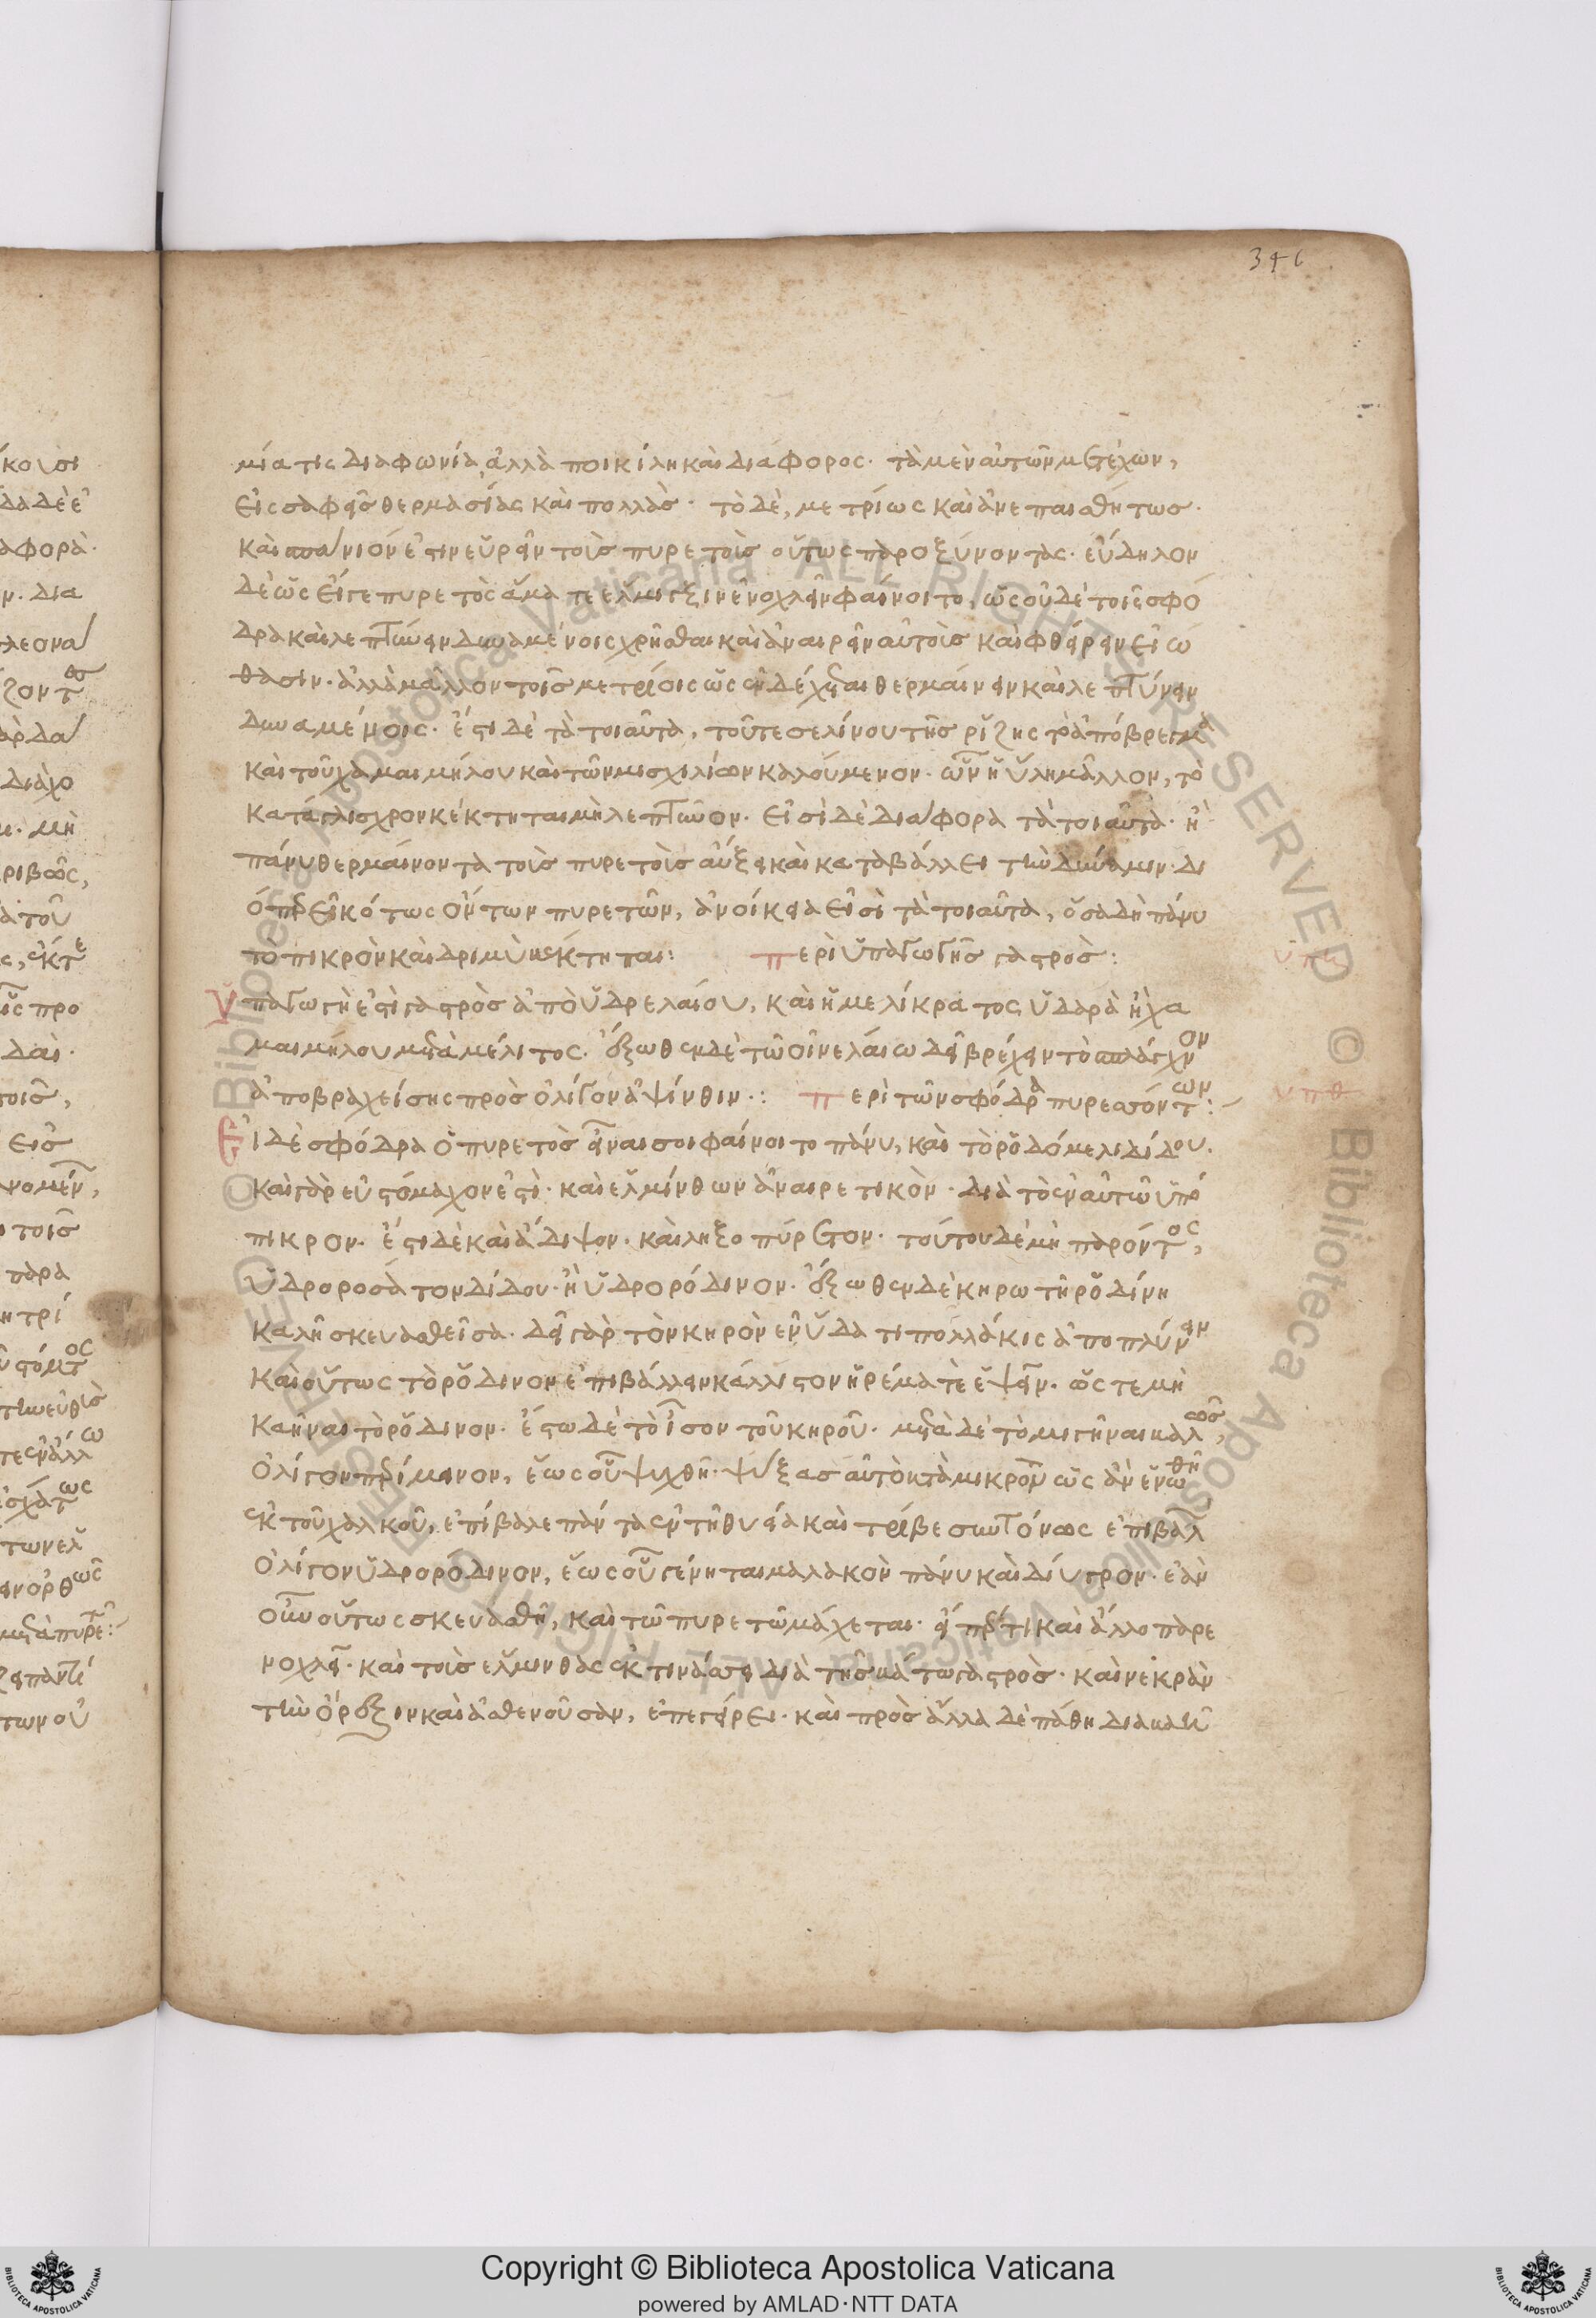 346
μία τις διαφωνία, ἀλλὰ ποικίλη καὶ διάφορος. τὰ μὲν αὐτῶν μετέχων,
εἰς σαφεῖς θερμασίας καὶ πολλὰς. τὸ δὲ, μετρίως καὶ ἀνεπαισθήτως.
καὶ σπάνιόν ἐστιν εὑρεῖν τοῖς πυρετοῖς οὕτως παροξύνοντας. εὔδηλον
δὲ ὡς εἴγε πυρετὸς ἅμα τε ἕλμιγξιν ἐνοχλεῖν φαίνοιτο, ὡς οὐδὲ τοῖς σφό
δρα καὶ λεπτύνειν δυναμένοις χρῆσθαι καὶ ἀναιρεῖν αὐτοῖς καὶ φθείρειν εἰώ
θασιν. ἀλλὰ μᾶλλον τοῖς μετρίοις ὡς ἐνδέχεται θερμαίνειν καὶ λεπτύνειν
δυναμένοις. ἔστι δὲ τὰ τοιαῦτα, τοῦ τε σελίνου τῆς ῥίζης τὸ ἀπόβρεγμα
καὶ τοῦ χαμαιμήλου καὶ τῶν μισχιλίων καλούμενον. ὧν ἡ ὕλη μᾶλλον, τὸ
κατάγλισχρον κέκτηται μὴ λεπτῦνον. εἰσὶ δὲ διάφορα τὰ τοιαῦτα. ἢ
πάνυ θερμαίνοντα τοῖς πυρετοῖς αὔξει καὶ καταβάλλει τὴν δύναμιν. δι
όπερ εἰκότως ὄντων πυρετῶν, ἀνοίκεια εἰσὶ τὰ τοιαῦτα, ὅσα δὴ πάνυ
τὸ πικρὸν καὶ δριμὺ κέκτηται: περὶ ὑπαγωγῆς γαστρός: υπη
Ὑπαγωγὴ ἐστὶ γαστρὸς ἀπὸ ὑδρελαίου, καὶ ἡ μελίκρατος ὑδαρὰ ἢ χα
μαιμήλου μετὰ μέλιτος. ἔξωθεν δὲ τῶ οἰνελαίω δεῖ βρέχειν τὸ σπλάγχνον
ἀποβραχείσης πρὸς ὀλίγον ἀψίνθιν.: περὶ τῶν σφόδρα πυρεσσόντων: υπθ
Εἰ δὲ σφόδρα ὁ πυρετὸς εἶναι σοι φαίνοιτο πάνυ, καὶ τὸ ῥοδόμελι δίδου.
καὶ γὰρ εὐστόμαχον ἐστὶ. καὶ ἑλμίνθων ἀναιρετικὸν. διὰ τὸ ἐν αὐτῶ ὑπό
πικρον. ἔστι δὲ καὶ ἄδιψον. καὶ ληξοπύρετον. τούτου δὲ μὴ παρόντος,
ὑδροροσάτον δίδου. ἢ ὑδρορόδινον. ἔξωθεν δὲ κηρωτῆ ῥοδίνη
καλῆ σκευασθεῖσα. δεῖ γὰρ τὸν κηρὸν ἐν ὕδατι πολλάκις ἀποπλύνειν
καὶ οὕτως τὸ ῥόδινον ἐπιβάλλειν κάλλιστον ἠρέμα τὲ ἕψειν. ὥστε μὴ
καῆναι τὸ ῥόδινον. ἔστω δὲ τὸ ἴσον τοῦ κηροῦ. μετὰ δὲ τὸ μιγῆναι καλῶς,
ὀλίγον περίμεινον, ἕως οὗ ψυχθῆ. ψύξας αὐτὸ κατὰ μικρὸν ὡς ἂν ἑνωθῆ
ἐκ τοῦ χαλκοῦ, ἐπίβαλε πάντα ἐν τῆ θυεία καὶ τρίβε συντόνως ἐπιβαλ
ὀλίγον ὑδρορόδινον, ἕως οὗ γένηται μαλακὸν πάνυ καὶ δίυγρον. ἐὰν
οὖν οὕτως σκευασθῆ, καὶ τῶ πυρετῶ μάχεται. εἴπερ τι καὶ ἄλλο παρε
νοχλεῖ. καὶ τοῖς ἕλμινθας ἐκτινάσσει διὰ τῆς κάτω γαστρὸς. καὶ νεκρὰν
τὴν ὄρεξιν καὶ ἀσθενοῦσαν, ἐπεγείρει. καὶ πρὸς ἄλλα δὲ πάθη διακαῆ
Copyright © Biblioteca Apostolica Vaticana
powered by AMLAD·NTT DATA